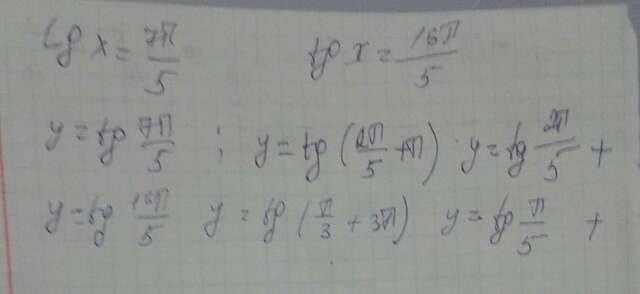 tg x = 7π/5 tg x = 16π/5
y = tg 7π/5 ; y = tg (2π/5 + π) y = tg 2π/5 +
y = tg 16π/5 y = tg (π/3 + 3π) y = tg π/5 +